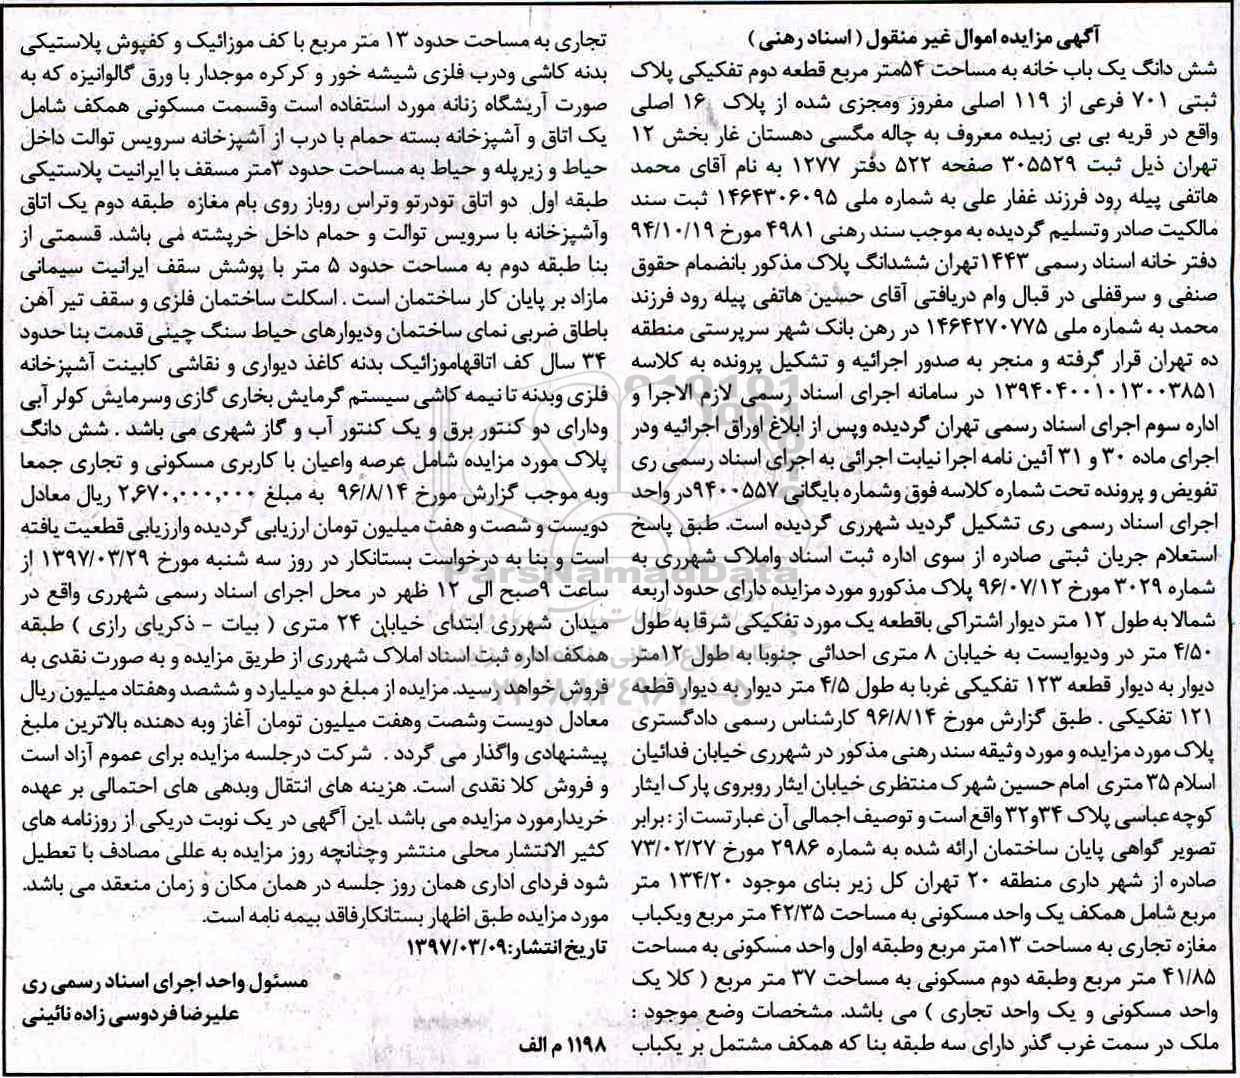 آگهی مزایده اموال غیر منقول ( اسناد رهنی )
شش دانگ یک باب خانه به مساحت ۵۴متر مربع قطعه دوم تفکیکی پلاک
ثبتی ۷۰۱ فرعی از ۱۱۹ اصلی مفروز ومجزی شده از پلاک ۱۶ اصلی
واقع در قریه بی بی زبیده معروف به چاله مگسی دهستان غار بخش ۱۲
تهران ذیل ثبت ۳۰۵۵۲۹ صفحه ۵۲۲ دفتر ۱۲۷۷ به نام آقای محمد
هاتفی پیله رود فرزند غفار علی به شماره ملی ۱۴۶۴۳۰۶۰۹۵ ثبت سند
مالکیت صادر وتسلیم گردیده به موجب سند رهنی ۴۹۸۱ مورخ ۹۴/۱۰/۱۹
دفتر خانه اسناد رسمی ۱۴۴۳تهران ششدانگ پلاک مذکور بانضمام حقوق
صنفی و سرقفلی در قبال وام دریافتی آقای حسین هاتفی پیله رود فرزند
محمد به شماره ملی ۱۴۶۴۲۷۰۷۷۵ در رهن بانک شهر سرپرستی منطقه
ده تهران قرار گرفته و منجر به صدور اجرائیه و تشکیل پرونده به کلاسه
۱۳۹۴۰۴۰۰۱۰۱۳۰۰۳۸۵۱ در سامانه اجرای اسناد رسمی لازم الاجرا و
اداره سوم اجرای اسناد رسمی تهران گردیده وپس از ابلاغ اوراق اجرائیه ودر
اجرای ماده ۳۰ و ۳۱ آئین نامه اجرا نیابت اجرائی به اجرای اسناد رسمی ری
تفویض و پرونده تحت شماره کلاسه فوق وشماره بایگانی۹۴۰۰۵۵۷در واحد
اجرای اسناد رسمی ری تشکیل گردید شهرری گردیده است. طبق پاسخ
استعلام جریان ثبتی صادره از سوی اداره ثبت اسناد واملاک شهرری به
شماره ۳۰۲۹ مورخ ۹۶/۰۷/۱۲ پلاک مذکورو مورد مزایده دارای حدود اربعه
شمالا به طول ۱۲ متر دیوار اشتراکی باقطعه یک مورد تفکیکی شرقا به طول
۴/۵۰ متر در ودیوایست به خیابان ۸ متری احداثی جنوبا به طول ۱۲متر
دیوار به دیوار قطعه ۱۲۳ تفکیکی غربا به طول ۴/۵ متر دیوار به دیوار قطعه
۱۲۱ تفکیکی . طبق گزارش مورخ ۹۶/۸/۱۴ کارشناس رسمی دادگستری
پلاک مورد مزایده و مورد وثیقه سند رهنی مذکور در شهرری خیابان فدائیان
اسلام ۳۵ متری امام حسین شهرک منتظری خیابان ایثار روبروی پارک ایثار
کوچه عباسی پلاک ۳۴و۳۲ واقع است و توصیف اجمالی آن عبارتست از : برابر
تصویر گواهی پایان ساختمان ارائه شده به شماره ۲۹۸۶ مورخ ۷۳/۰۲/۲۷
صادره از شهر داری منطقه ۲۰ تهران کل زیر بنای موجود ۱۳۴/۲۰ متر
مربع شامل همکف یک واحد مسکونی به مساحت ۴۲/۳۵ متر مربع ویکباب
مغازه تجاری به مساحت ۱۳متر مربع وطبقه اول واحد مسکونی به مساحت
۴۱/۸۵ متر مربع وطبقه دوم مسکونی به مساحت ۳۷ متر مربع ( کلا یک
واحد مسکونی و یک واحد تجاری ) می باشد. مشخصات وضع موجود :
ملک در سمت غرب گذر دارای سه طبقه بنا که همکف مشتمل بر یکباب
تجاری به مساحت حدود ۱۳ متر مربع با کف موزائیک و کفپوش پلاستیکی
بدنه کاشی ودرب فلزی شیشه خور و کرکره موجدار با ورق گالوانیزه که به
صورت آریشگاه زنانه مورد استفاده است وقسمت مسکونی همکف شامل
یک اتاق و آشپزخانه بسته حمام با درب از آشپزخانه سرویس توالت داخل
حیاط و زیرپله و حیاط به مساحت حدود ۳متر مسقف با ایرانیت پلاستیکی
طبقه اول دو اتاق تودرتو وتراس روباز روی بام مغازه طبقه دوم یک اتاق
وآشپزخانه با سرویس توالت و حمام داخل خرپشته می باشد. قسمتی از
بنا طبقه دوم به مساحت حدود ۵ متر با پوشش سقف ایرانیت سیمانی
مازاد بر پایان کار ساختمان است . اسکلت ساختمان فلزی و سقف تیر آهن
باطاق ضربی نمای ساختمان ودیوارهای حیاط سنگ چینی قدمت بنا حدود
۳۴ سال کف اتاقهاموزائیک بدنه کاغذ دیواری و نقاشی کابینت آشپزخانه
فلزی وبدنه تا نیمه کاشی سیستم گرمایش بخاری گازی وسرمایش کولر آبی
ودارای دو کنتور برق و یک کنتور آب و گاز شهری می باشد . شش دانگ
پلاک مورد مزایده شامل عرصه واعیان با کاربری مسکونی و تجاری جمعا
وبه موجب گزارش مورخ ۹۶/۸/۱۴ به مبلغ ۲,۶۷۰,۰۰۰,۰۰۰ ریال معادل
دویست و شصت و هفت میلیون تومان ارزیابی گردیده وارزیابی قطعیت یافته
است و بنا به درخواست بستانکار در روز سه شنبه مورخ ۱۳۹۷/۰۳/۲۹ از
ساعت ۹صبح الی ۱۲ ظهر در محل اجرای اسناد رسمی شهرری واقع در
میدان شهرری ابتدای خیابان ۲۴ متری ( بیات - ذکریای رازی ) طبقه
همکف اداره ثبت اسناد املاک شهرری از طریق مزایده و به صورت نقدی به
فروش خواهد رسید. مزایده از مبلغ دو میلیارد و ششصد وهفتاد میلیون ریال
معادل دویست وشصت وهفت میلیون تومان آغاز وبه دهنده بالاترین ملبغ
پیشنهادی واگذار می گردد . شرکت درجلسه مزایده برای عموم آزاد است
و فروش کلا نقدی است. هزینه های انتقال وبدهی های احتمالی بر عهده
خریدارمورد مزایده می باشد .این آگهی در یک نوبت دریکی از روزنامه های
کثیر الانتشار محلی منتشر وچنانچه روز مزایده به عللی مصادف با تعطیل
شود فردای اداری همان روز جلسه در همان مکان و زمان منعقد می باشد.
مورد مزایده طبق اظهار بستانکارفاقد بیمه نامه است.
تاریخ انتشار:۱۳۹۷/۰۳/۰۹
مسئول واحد اجرای اسناد رسمی ری
علیرضا فردوسی زاده نائینی
۱۱۹۸ م الف
ParsNamadData